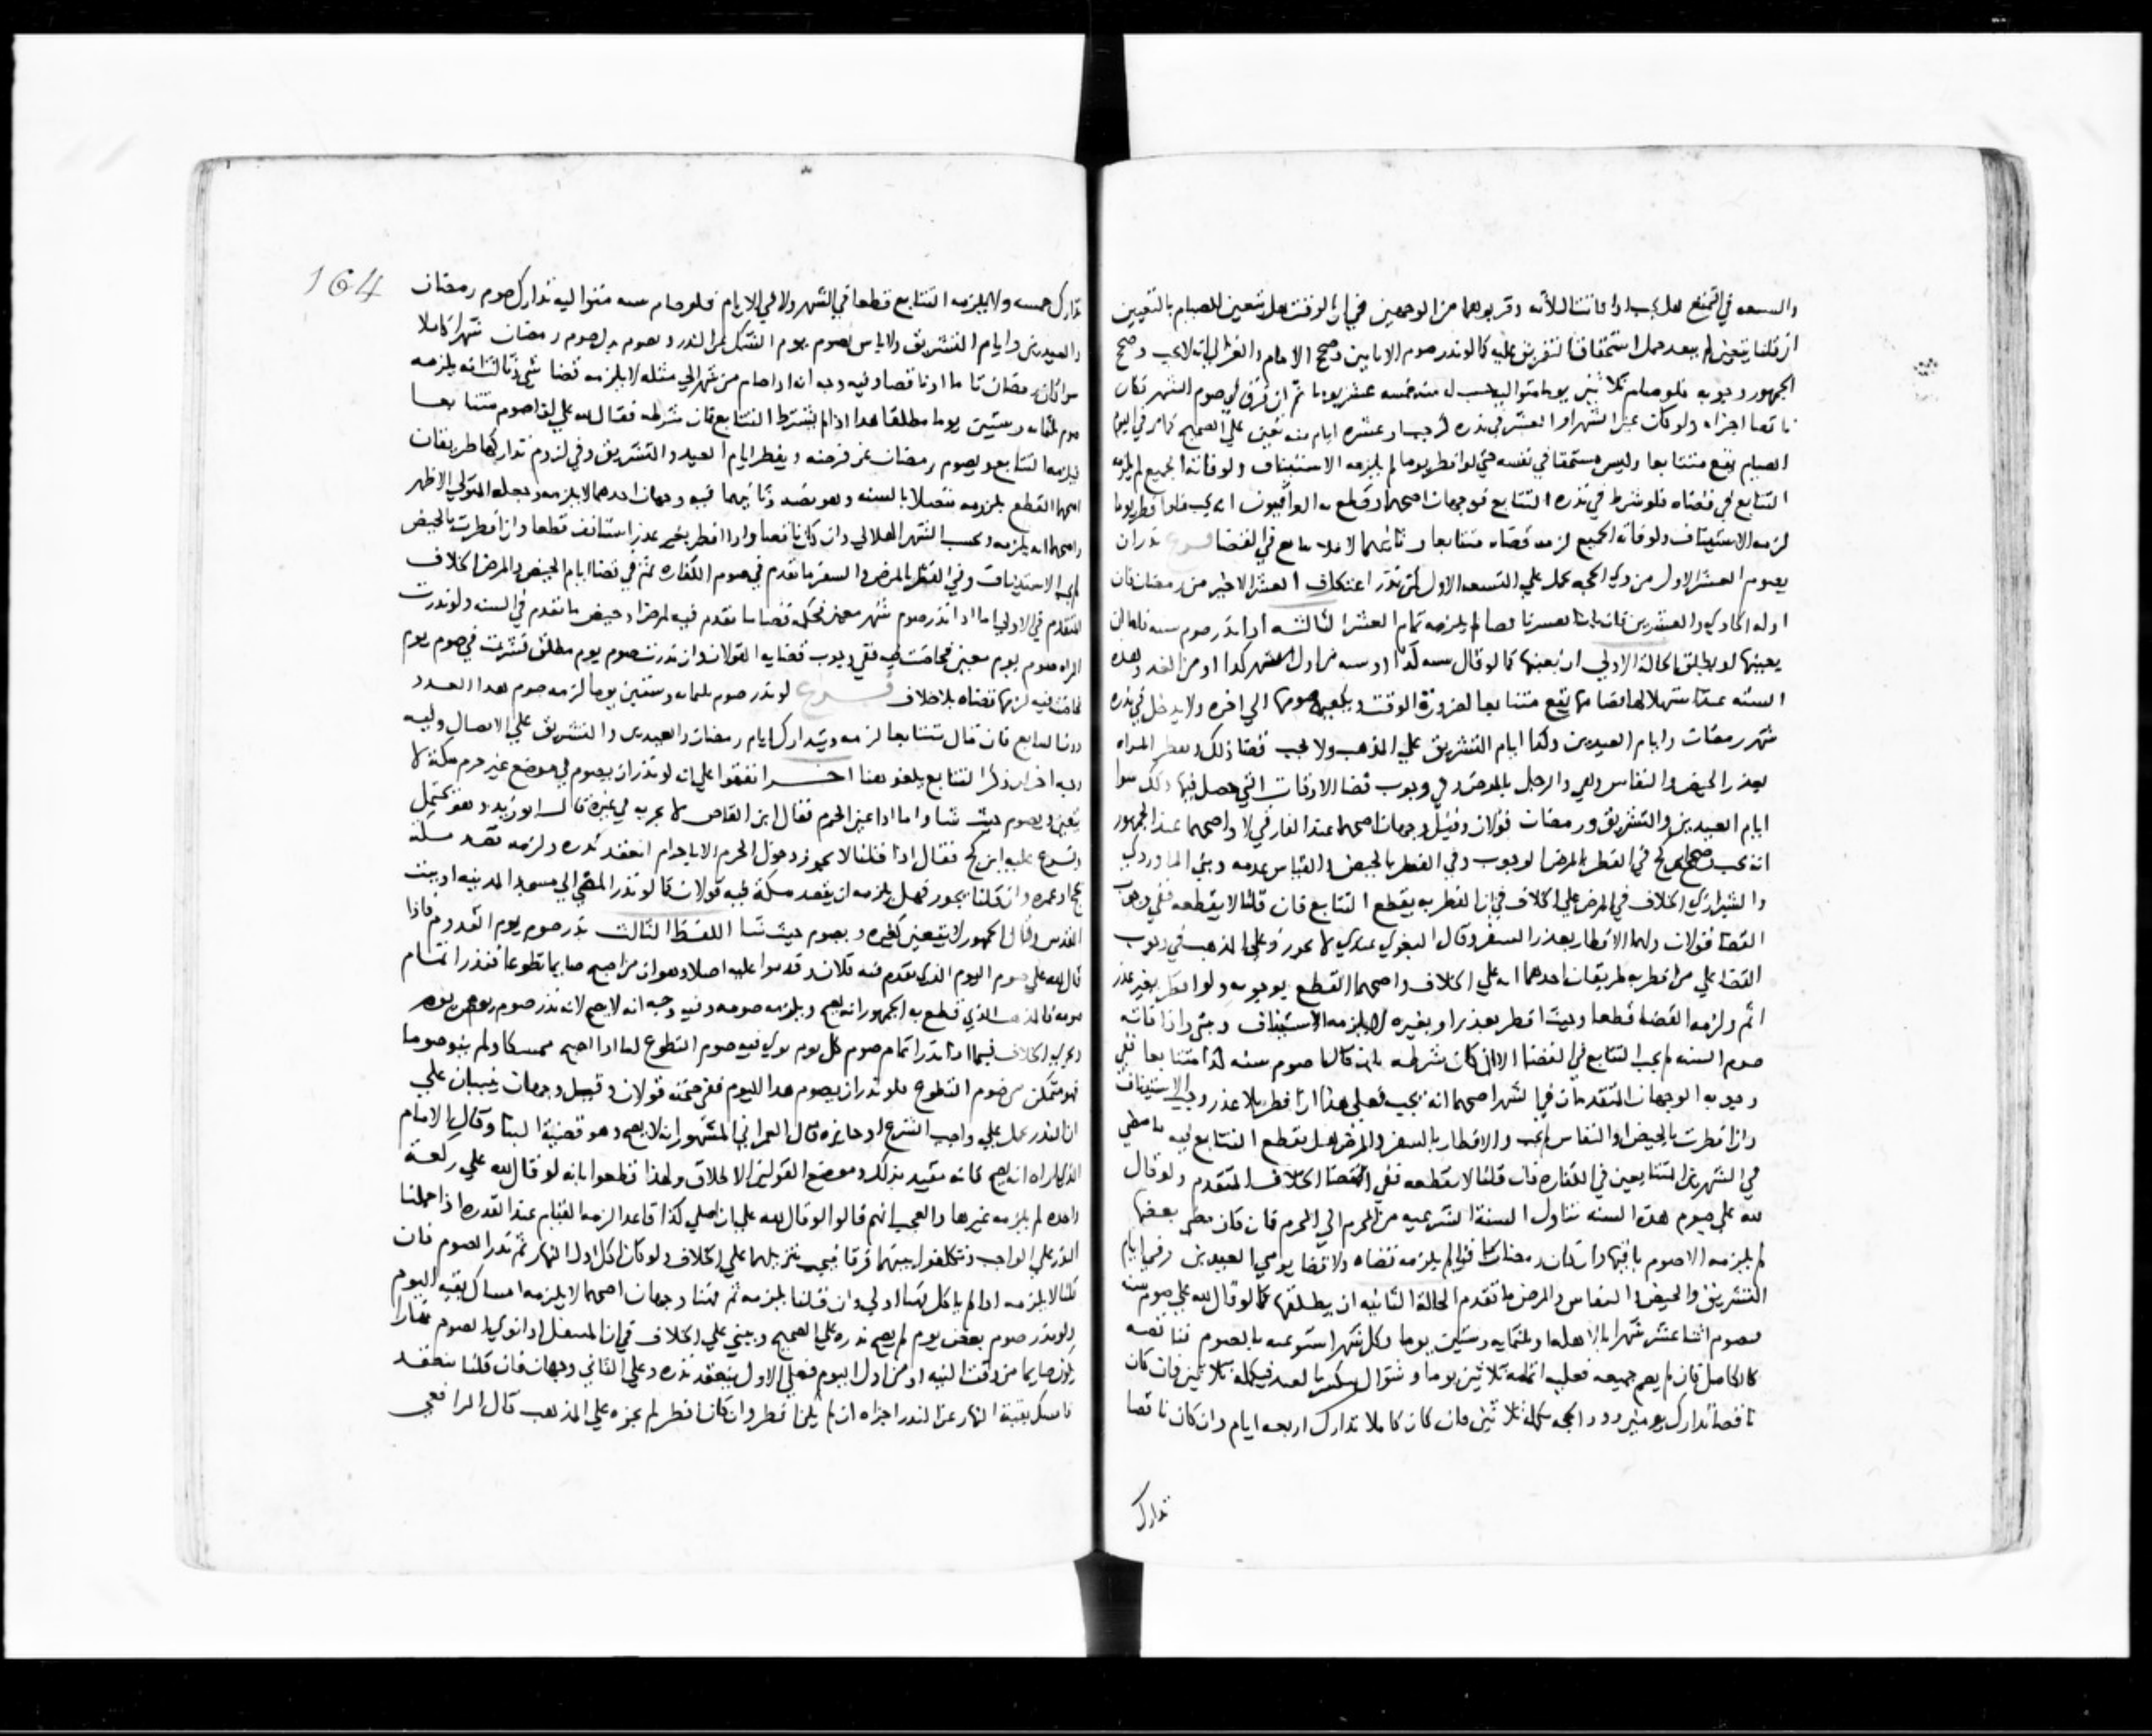 والسبعه في التمتع هل يجب اذا فاتت الثلاثه وقربوهما من الوجهين في ان الوقت هل يتعين للصيام بالتعيين
ان قلنا يتعين لم يبعد حمل استحقاق التفريق عليه كما لو نذر صوم الاثانين وصحح الامام والغزالي انه لا يجب وصحح
الجمهور وجوبه فلو صام ثلاثين يوما متواليه حسب له منه خمسه عشر يوما ثم ان فرق في صوم الشهر فكان
ناقصا اجزاه ولو كان عين الشهر او العشر في نذره كرجب او عشره ايام منه تعين علي الصحيح كما مر في اليوم
الصيام يقع متتابعا وليس مستحقا في نفسه حتي لو افطر يوما لم يلزمه الاستيناف ولو فاته الجميع لم يلزمه
التتابع في قضاه فلو شرط في نذره التتابع فوجهان اصحهما وقطع به العراقيون انه يجب فلو افطر يوما
لزمه الاستيناف ولو فاته الجميع لزمه قضاه متتابعا وثانيهما لا فلا تتابع في القضا فرع نذر ان
يصوم العشر الاول من ذي الحجه حمل علي التسعه الاول كمن نذر اعتكاف العشر الاخير من رمضان فان
اوله الحادي والعشرين فان كان الشهر ناقصا لم يلزمه تمام العشر الثالثه اذا نذر صوم سنه فلها ان
يعينها او يطلق الحاله الاولي ان يعينها كما لو قال سنه كذا او سنه من اول شهر كذا او من الغد وهذه
السنه عند استهلالها فصيامها يقع متتابعا لضروره الوقت ويلزمه صومها الي اخره ولا يدخل في نذره
شهر رمضان وايام العيدين وكذا ايام التشريق علي المذهب ولا يجب قضا ذلك وتفطر المراه
بعذر الحيض والنفاس وهي والرجل بالمرض وفي وجوب قضا الاوقات التي حصل فيها ذلك سوا
ايام العيدين والتشريق ورمضان قولان وقيل وجهان اصحهما عند الفارقي لا واصحهما عند الجمهور
انه يجب وصحح ابن كج في الفطر بالمرض الوجوب وفي الفطر بالحيض والقياس عدمه وبني الماوردي
والشيرازي الخلاف في المرض علي الخلاف في ان الفطر به يقطع التتابع فان قلنا لا يقطعه ففي وجوب
القضا قولان ولهما الافطار بعذر السفر وقال البغوي عندي لا يجوز وعلي المذهب في وجوب
القضا علي من افطر به طريقان احدهما انه علي الخلاف واصحهما القطع بوجوبه ولو افطر بغير عذر
اثم ولزمه القضا قطعا وحيث افطر بعذر او بغيره لا يلزمه الاستيناف ومتي اذا فاته
صوم السنه لم يجب التتابع في القضا الا ان كان شرطه بان قال صوم سنه كذا متتابعا ففي
وجوبه الوجهان المتقدمان في الشهر اصحهما انه يجب فعلي هذا ان افطر بلا عذر وجب الاستيناف
وان افطرت بالحيض او النفاس لم يجب والافطار بالسفر والمرض هل يقطع التتابع فيه ما مضي
في الشهرين المتتابعين في الكفاره فان قلنا لا يقطعه ففي القضا الخلاف المتقدم ولو قال
لله علي صوم هذه السنه تناول السنه الشرعيه من المحرم الي المحرم فان كان مضي بعضها
لم يلزمه الا صوم باقيها وان كان رمضان باقيا لم يلزمه قضاه ولا قضا يومي العيدين وفي ايام
التشريق والحيض والنفاس والمرض ما تقدم الحاله الثانيه ان يطلقها كما لو قال لله علي صوم سنه
فصوم اثنا عشر شهرا بالاهله او ثلثمايه وستين يوما وكل شهر استوعبه بالصوم فناقصه
كالكامل فان لم يصم جميعه فعليه اتمامه ثلاثين يوما وشوال ينكسر بالعيد فيكمله ثلاثين فان كان
ناقصا تدارك يومين وذو الحجه يكمله ثلاثين فان كان كاملا تدارك اربعه ايام وان كان ناقصا
تدارك
164
تدارك خمسه ولا يلزمه التتابع قطعا في الشهر ولا في الايام فلو صام سنه متواليه تدارك صوم رمضان
والعيدين وايام التشريق ولا باس بصوم يوم الشك عن النذر وبصوم بدل صوم رمضان شهرا كاملا
سوا كان رمضان تاما او ناقصا وفيه وجه انه اذا صام من شهر الي مثله لا يلزمه قضا شي وثالث انه يلزمه
صوم ثلثمايه وستين يوما مطلقا هذا اذا لم يشترط التتابع فان شرطه فقال لله علي ان اصوم متتابعا
فيلزمه التتابع ويصوم رمضان عن فرضه ويفطر ايام العيد والتشريق وفي لزوم تداركها طريقان
اصحهما القطع بلزومه متصلا بالسنه وهو نصه وثانيهما فيه وجهان احدهما لا يلزمه وجعله المتولي الاظهر
واصحهما انه يلزمه ويحسب الشهر الهلالي وان كان ناقصا واذا افطر بغير عذر استانف قطعا وان افطرت بالحيض
لم يجب الاستيناف وفي الفطر بالمرض والسفر ما تقدم في صوم الكفاره ثم في قضا ايام الحيض والمرض الخلاف
المتقدم في الاولي اما اذا نذر صوم شهر معين فحكم قضا ما تقدم فيه لمرض او حيض ما تقدم في السنه ولو نذرت
المراه صوم يوم معين فحاضت فيه ففي وجوب قضايه القولان وان نذرت صوم يوم مطلق فشرعت في صوم يوم
فحاضت فيه لزمها قضاه بلا خلاف فرع لو نذر صوم ثلثمايه وستين يوما لزمه صوم هذا العدد
دون التتابع فان قال متتابعا لزمه ويتدارك ايام رمضان والعيدين والتشريق علي الاتصال وفيه
وجه اخر ان ذكر التتابع يلغو هنا اخر اتفقوا علي انه لو نذر ان يصوم في موضع غير حرم مكه لا
يتعين ويصوم حيث شا واما اذا عين الحرم فقال ابن القاص لا يجزيه في غيره قال ابو زيد وهو يحتمل
وتبرع عليه ابن كج فقال اذا قلنا لا يجوز دخول الحرم الا باحرام انعقد نذره ولزمه قصد مكه
بحج او عمره وان قلنا يجوز فهل يلزمه ان يقصد مكه فيه قولان كما لو نذر المضي الي مسجد المدينه او بيت
المقدس وقال الجمهور لا يتعين كغيره ويصوم حيث شا اللفظ الثالث نذر صوم يوم القدوم فاذا
قال لله علي صوم اليوم الذي يقدم فيه فلان وقدموا عليه اصلا وهو ان من اصبح صايما تطوعا فنذر اتمام
صومه فالمذهب الذي قطع به الجمهور انه يصح ويلزمه صومه وفيه وجه انه لا يصح لانه نذر صوم بعض يوم
ويجري الخلاف فيما اذا نذر اتمام صوم كل يوم نوي فيه صوم التطوع اما اذا اصبح ممسكا ولم ينو صوما
فهو متمكن من صوم التطوع فلو نذر ان يصوم هذا اليوم ففي صحته قولان وقيل وجهان يبنيان علي
ان النذر يحمل علي واجب الشرع او جايزه قال العمراني المشهور انه لا يصح وهو قضيه البنا وقال الامام
الذي اراه انه يصح لانه مقيد بذلك وموضع القولين الاطلاق ولهذا قطعوا بانه لو قال لله علي ركعه
واحده لم يلزمه غيرها والعجب انهم قالوا لو قال لله علي ان اصلي كذا قاعدا لزمه القيام عند القدره اذا حملنا
النذر علي الواجب وتكلفوا بينهما فرقا فيجب تنزيلهما علي الخلاف ولو كان اكل اول النهار ثم نذر الصوم فان
قلنا لا يلزمه اذا لم ياكل فهنا اولي وان قلنا يلزمه ثم فهنا وجهان اصحهما لا يلزمه امساك بقيه اليوم
ولو نذر صوم بعض يوم لم يصح نذره علي الصحيح ويبني علي الخلاف في ان المتنفل اذا نوي الصوم نهارا
يكون صايما من وقت النيه او من اول اليوم فعلي الاول ينعقد نذره وعلي الثاني وجهان فان قلنا ينعقد
فامسك بقيه النهار عن النذر اجزاه ان لم يكن افطر وان كان افطر لم يجزه علي المذهب قال الرافعي